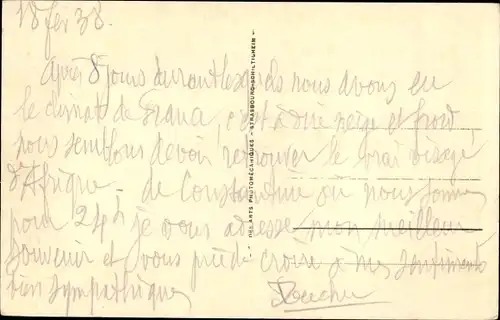 18 fev 38.
Après 8 jours durant lesquels nous avons eu
le climat de c'est à dire neige et froid
nous semblons devoir retrouver le vrai visage
d'Afrique - de Constantine où nous sommes
pour 24h je vous adresse mon meilleur
souvenir et vous prie de croire à mes sentiments
bien sympathiques
DES ARTS PHOTOMÉCANIQUES - STRASBOURG-SCHILTIGHEIM